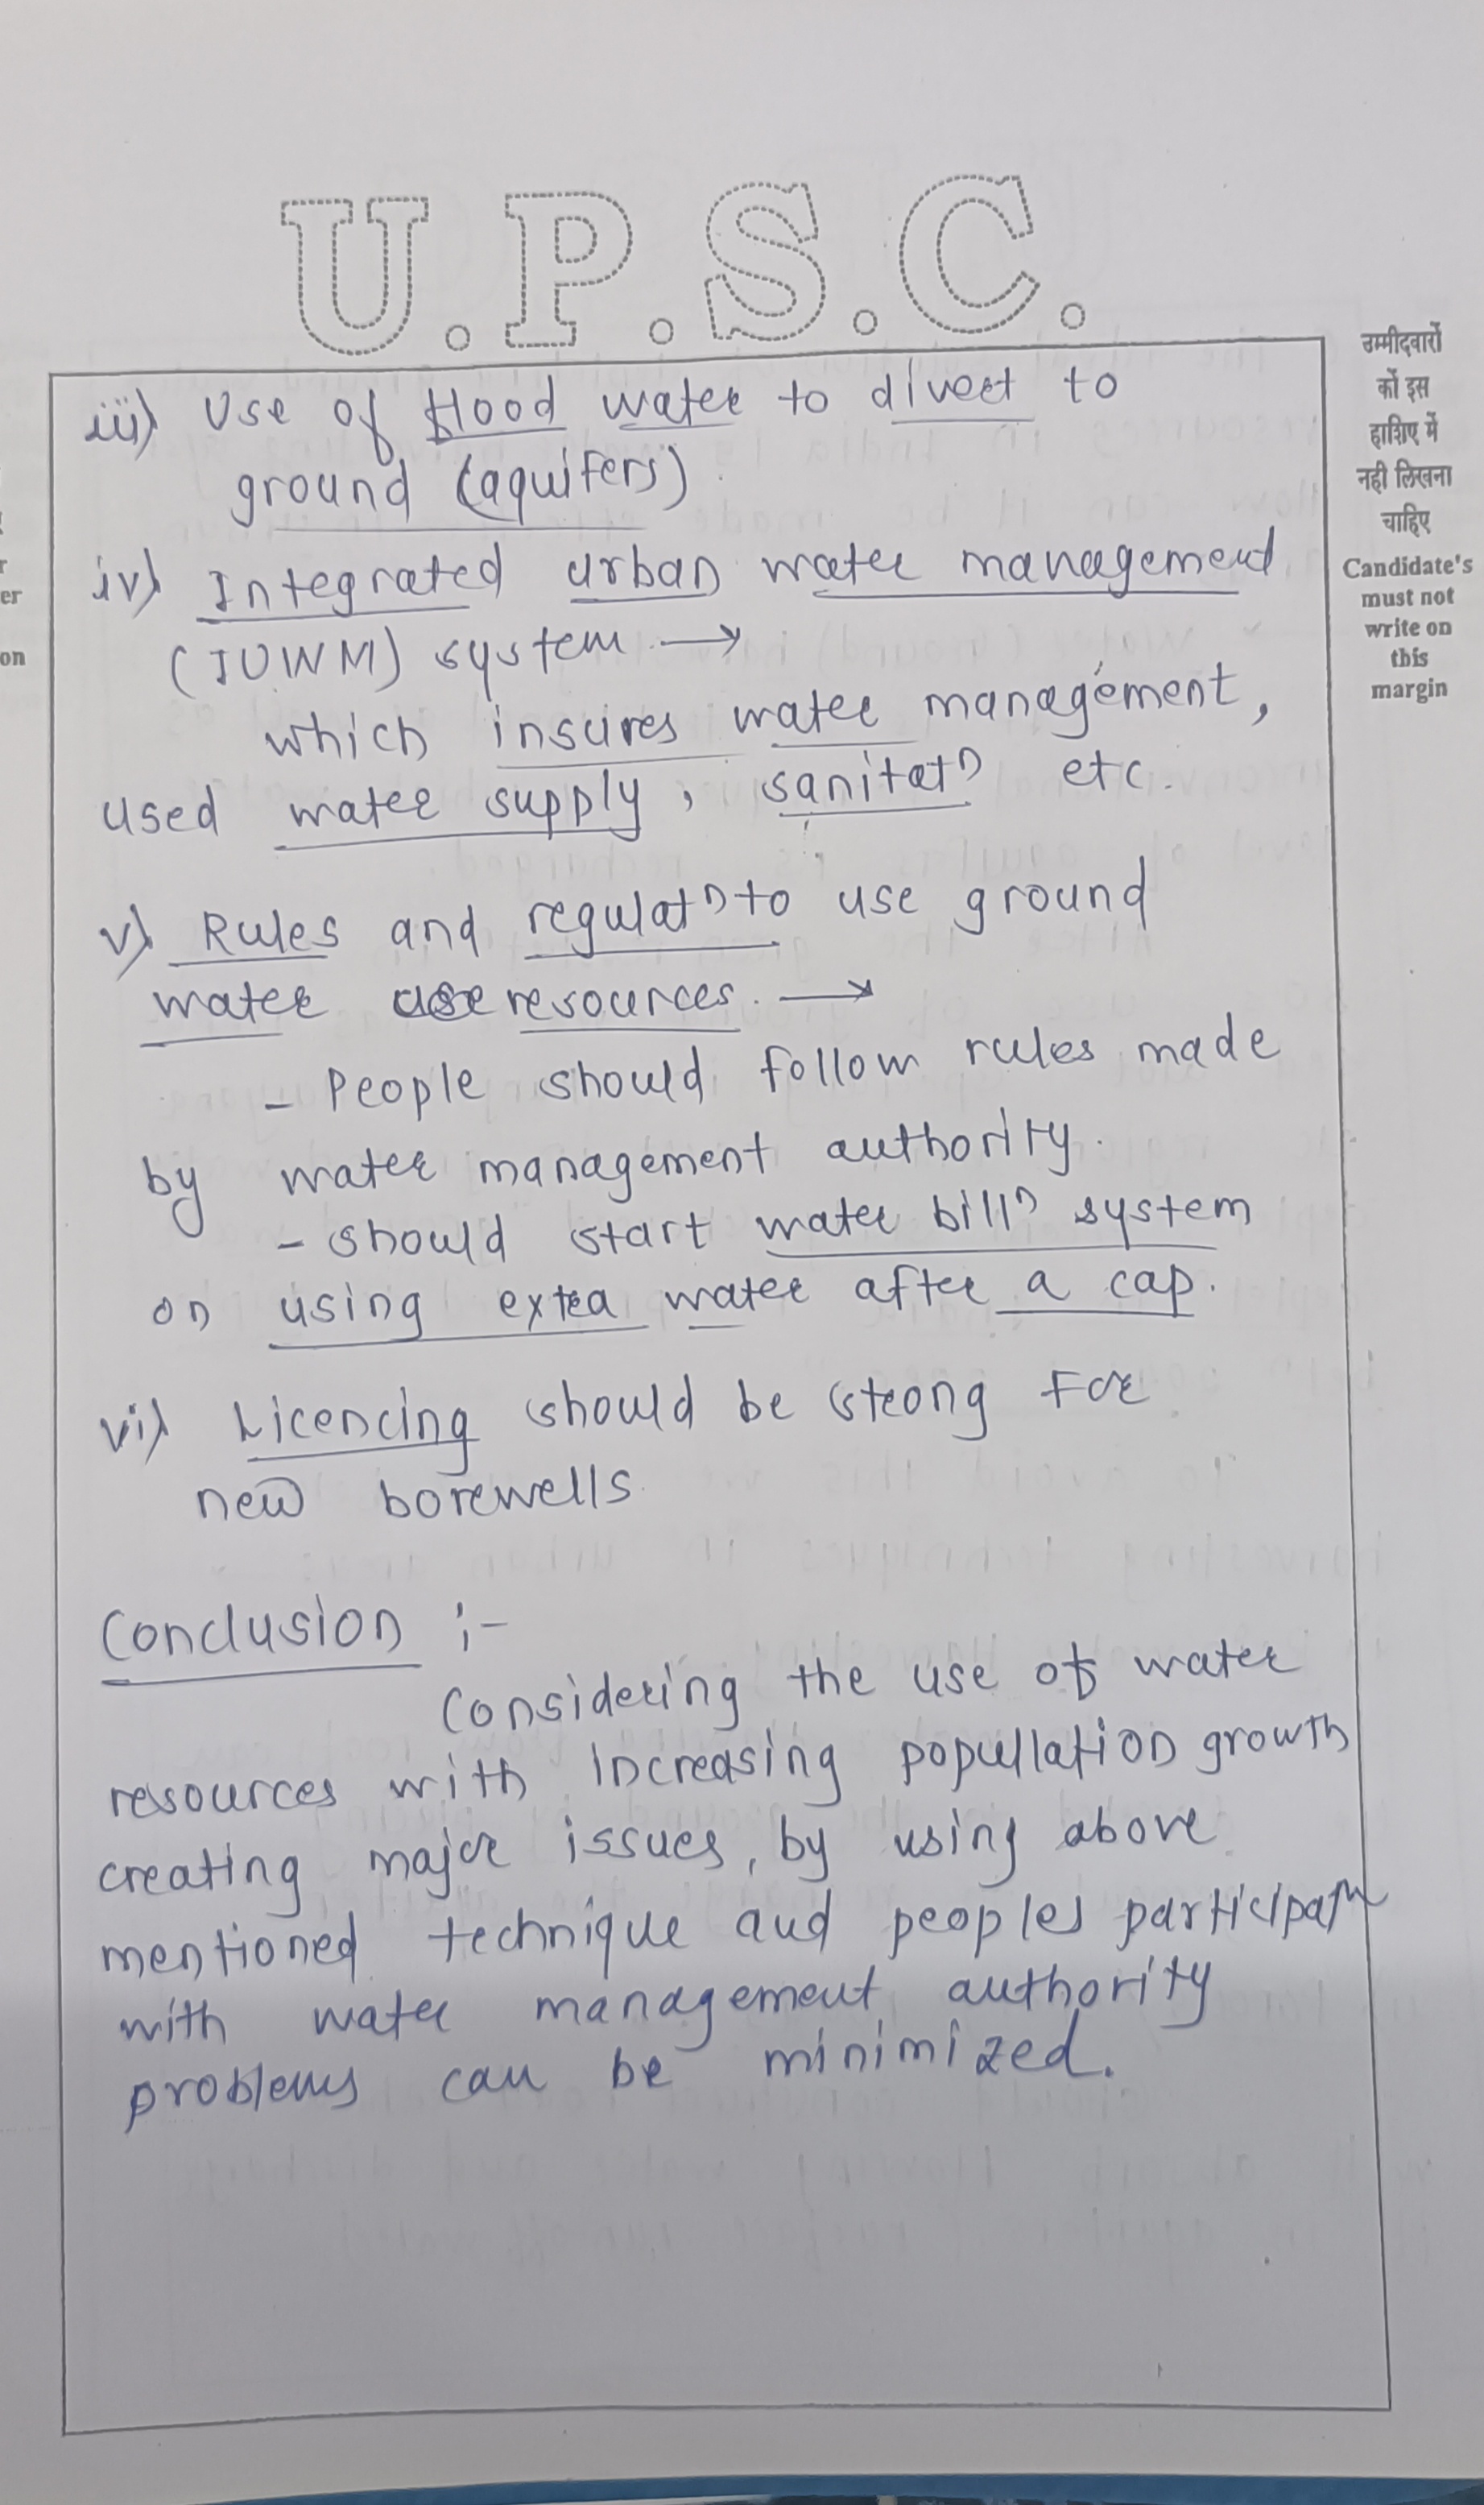 U.P.S.C.
iii) Use of flood water to divert to
ground (aquifers).
iv) Integrated urban water management
(IUWM) system →
which insures water management,
used water supply, sanitatn etc.
v) Rules and regulatn to use ground
water resources. →
- People should follow rules made
by water management authority.
- should start water billn system
on using extra water after a cap.
vi) Licencing should be strong for
new borewells.
Conclusion :-
Considering the use of water
resources with increasing popullation growth
creating major issues, by using above
mentioned technique and peoples participatn
with water management authority
problems can be minimized.
उम्मीदवारों
को इस
हाशिए में
नही लिखना
चाहिए
Candidate's
must not
write on
this
margin
er
on